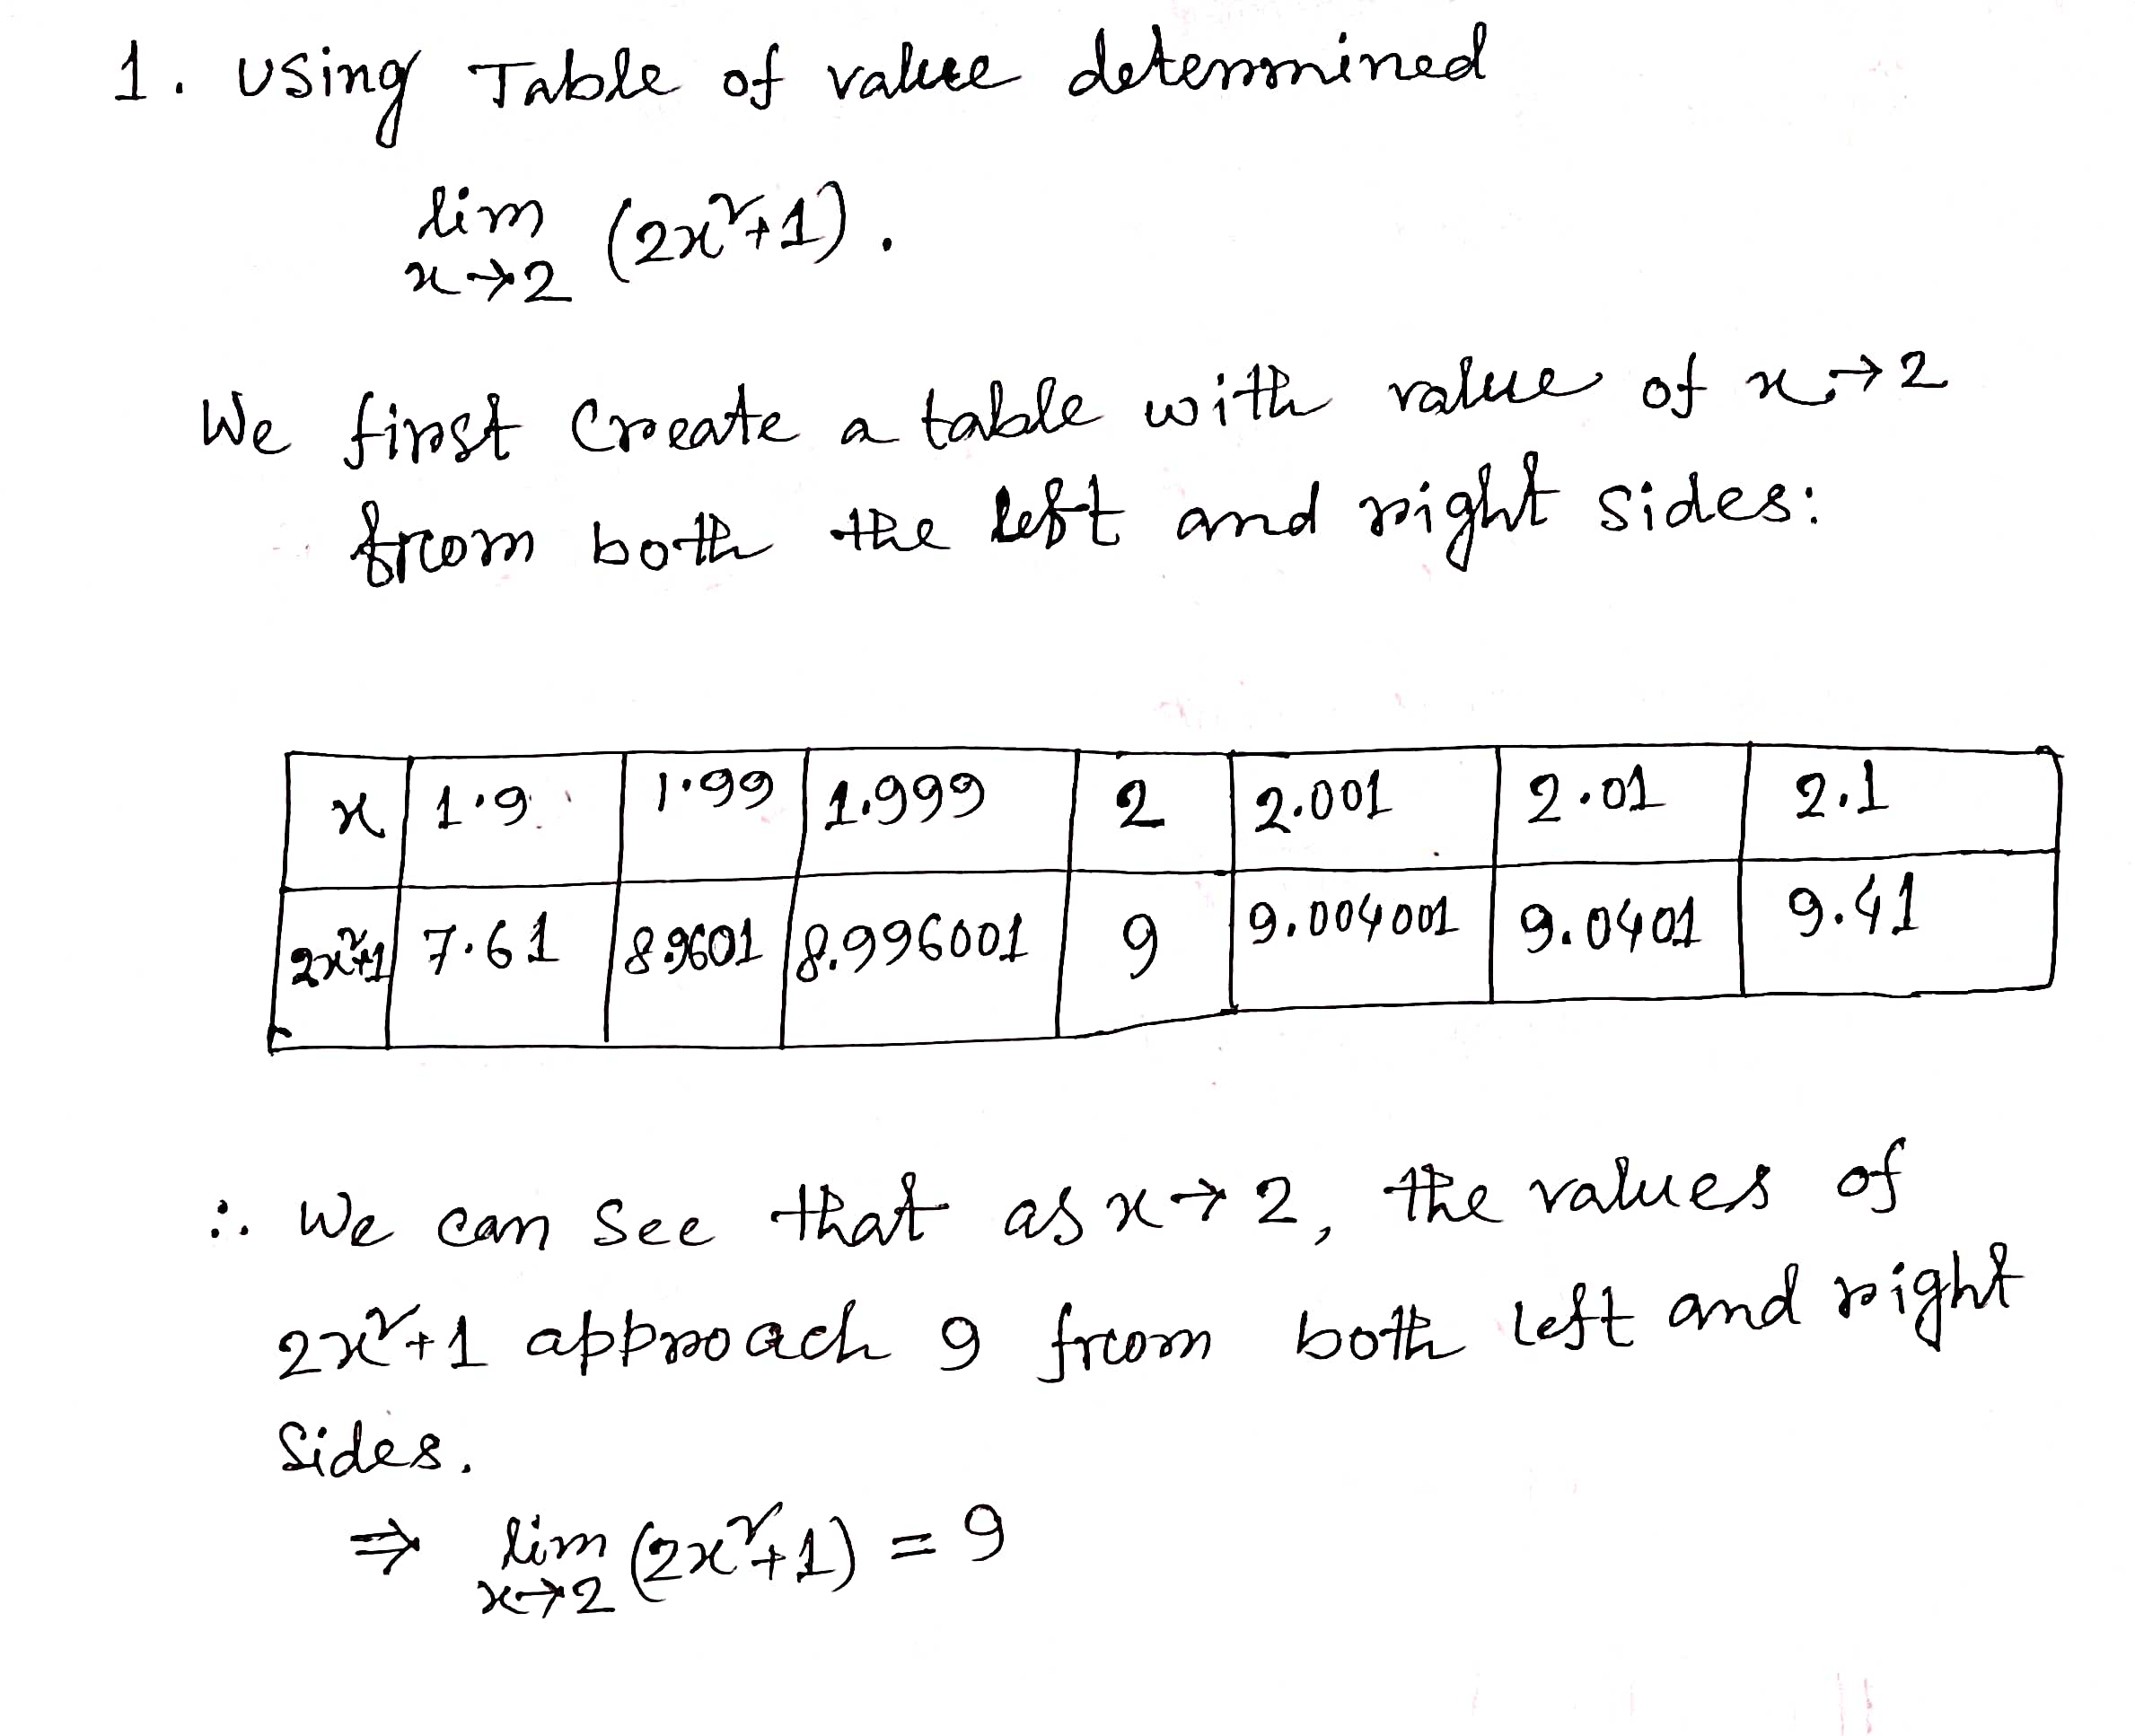 1. Using Table of value determined
lim (2x²+1).
x→2
We first Create a table with value of x→2
from both the left and right sides:
x 1.9 1.99 1.999 2 2.001 2.01 2.1
2x²+1 7.61 8.9601 8.996001 9 9.004001 9.0401 9.41
∴ We can see that as x→2, the values of
2x²+1 approach 9 from both left and right
sides.
⇒ lim (2x²+1) = 9
x→2